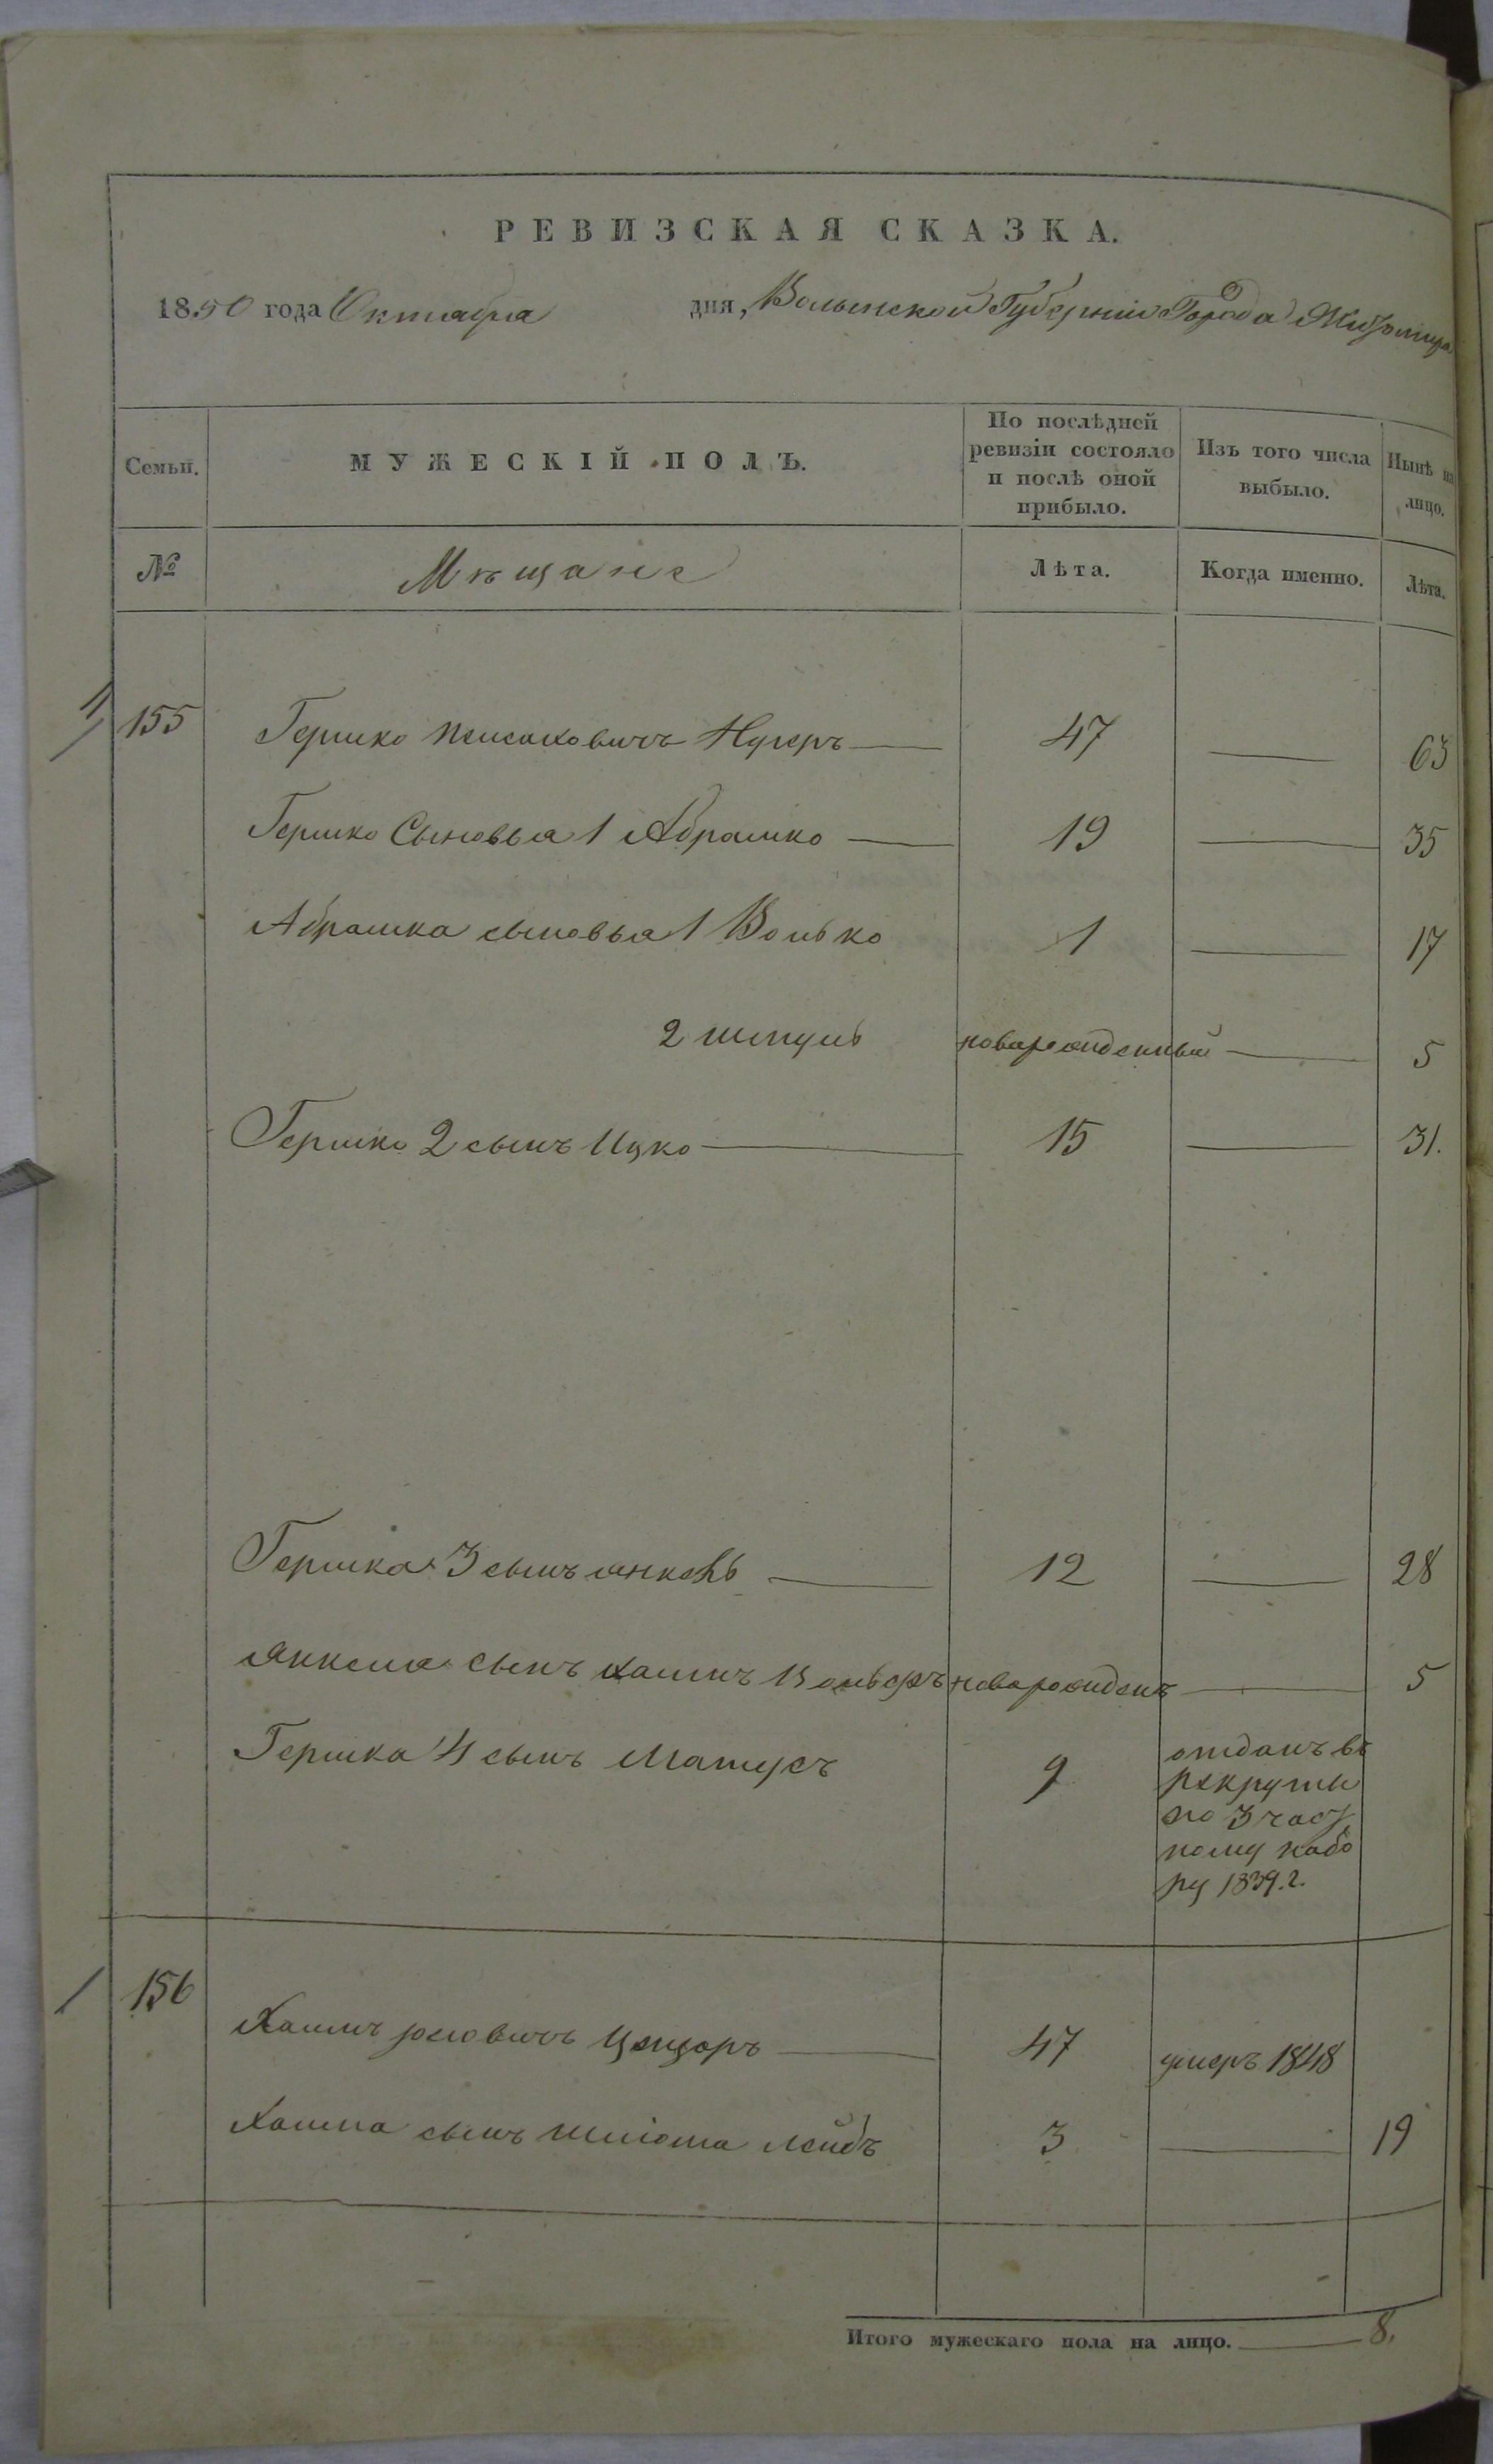 РЕВИЗСКАЯ СКАЗКА.
1850 года Октября дня, Волынской Губерніи Города Житомира
Семьи. МУЖЕСКІЙ ПОЛЪ. По послѣдней ревизіи состояло и послѣ оной прибыло. Изъ того числа выбыло. Нынѣ на лицо.
№ Мѣщане Лѣта. Когда именно. Лѣта.
155 Гершко Пейсаховичъ 47 — 63
Гершко Сыновья 1 Абрамко — 19 — 35
Абрамка сыновья 1 Волько 1 — 17
2 Шмуль новорожденный — 5
Гершко 2 сынъ Ицко — 15 — 31.
Гершка 3 сынъ Янкель — 12 — 28
Янкеля сынъ Хаимъ Вольфъ новорожденъ — 5
Гершка 4 сынъ Матусъ 9 отданъ въ
рекруты
по 3 част
ному набо
ру 1839.г.
156 Хаимъ — 47 умеръ 1848
Хаима сынъ Шліома Лейбъ 3 — 19
Итого мужескаго пола на лицо. — 8.